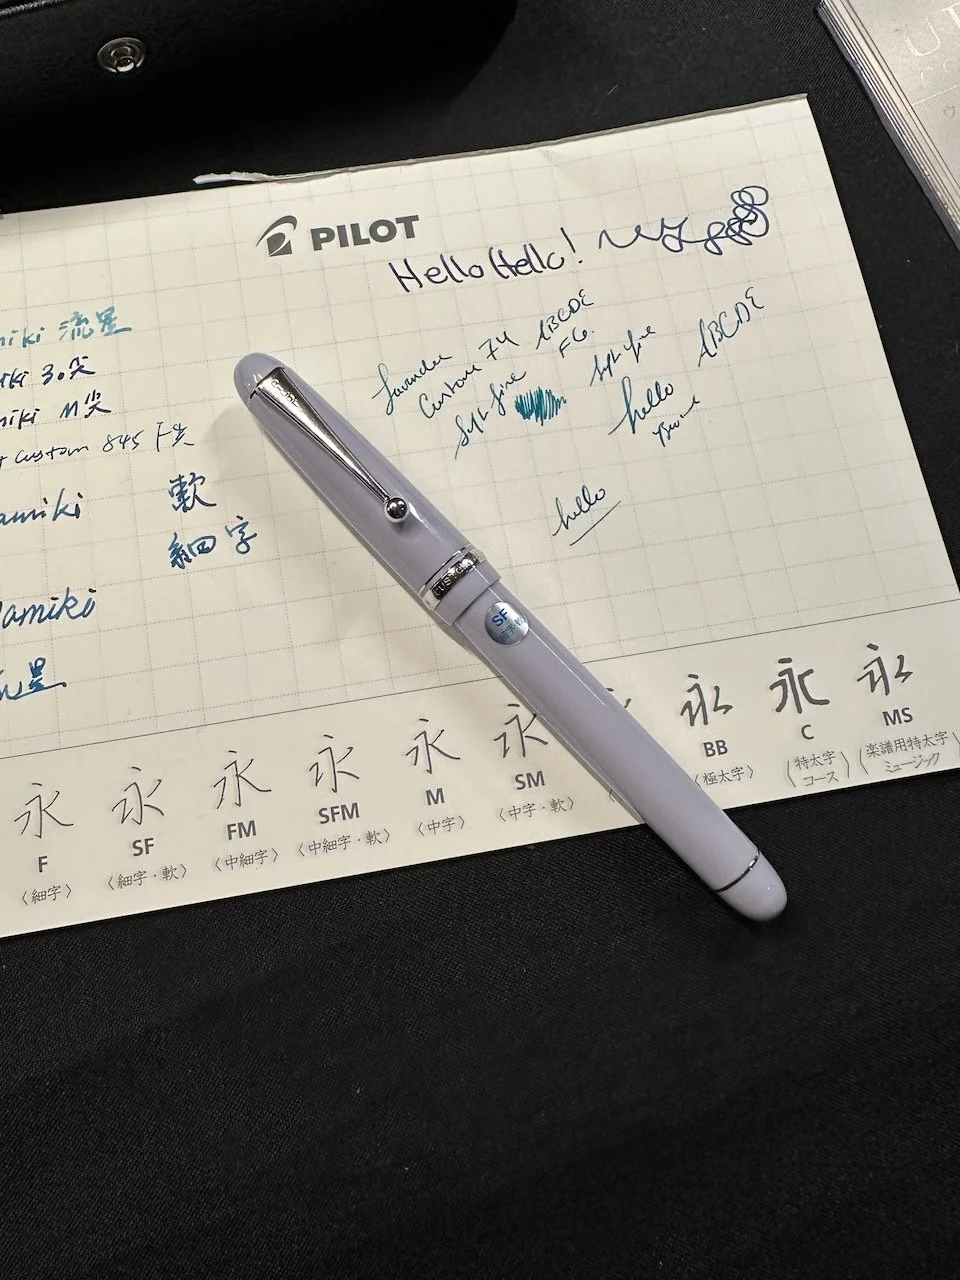 PILOT
Hello Hello!
Lavender
Custom 74
ABCDE
FG.
Soft fine
Soft fine
ABCDE
hello
hello
流星
30尖
M尖
Custom 845 F尖
軟
細字
星
CUSTOM
SF
永 永 永 永 永 永 永 永 永
F SF FM SFM M SM BB C MS
〈細字〉 〈細字・軟〉 〈中細字〉 〈中細字・軟〉 〈中字〉 〈中字・軟〉 〈極太字〉 〈特太字 コース〉 〈楽譜用特太字 ミュージック〉